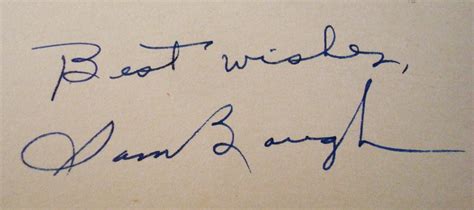 Best wishes,
Sam Baugh